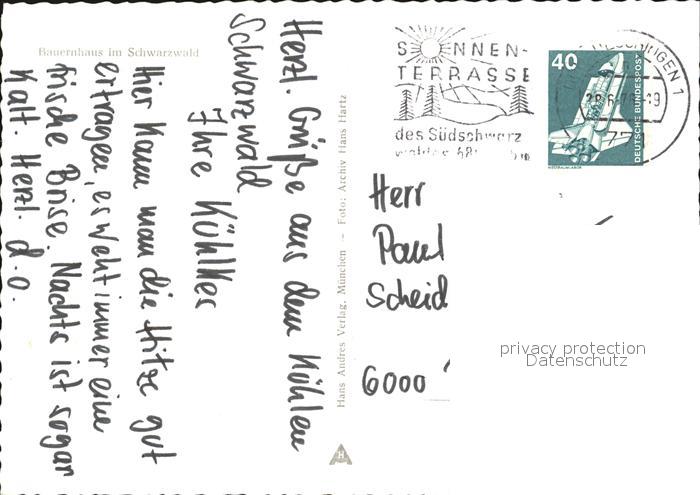 Bauernhaus im Schwarzwald
Herzl. Grüße aus dem kühlen
Schwarzwald
Ihre Kühlkes
Hier kann man die Hitze gut
ertragen, es weht immer eine
frische Brise. Nachts ist sogar
kalt. Herzl. d.o.
Hans Andres Verlag, München – Foto: Archiv Hans Hartz
H
SONNEN-
TERRASSE
des Südschwarz
40
DEUTSCHE BUNDESPOST
WELTRAUMLABOR
INGEN 1
77
Herr
Paul
Scheid
6000
privacy protection
Datenschutz